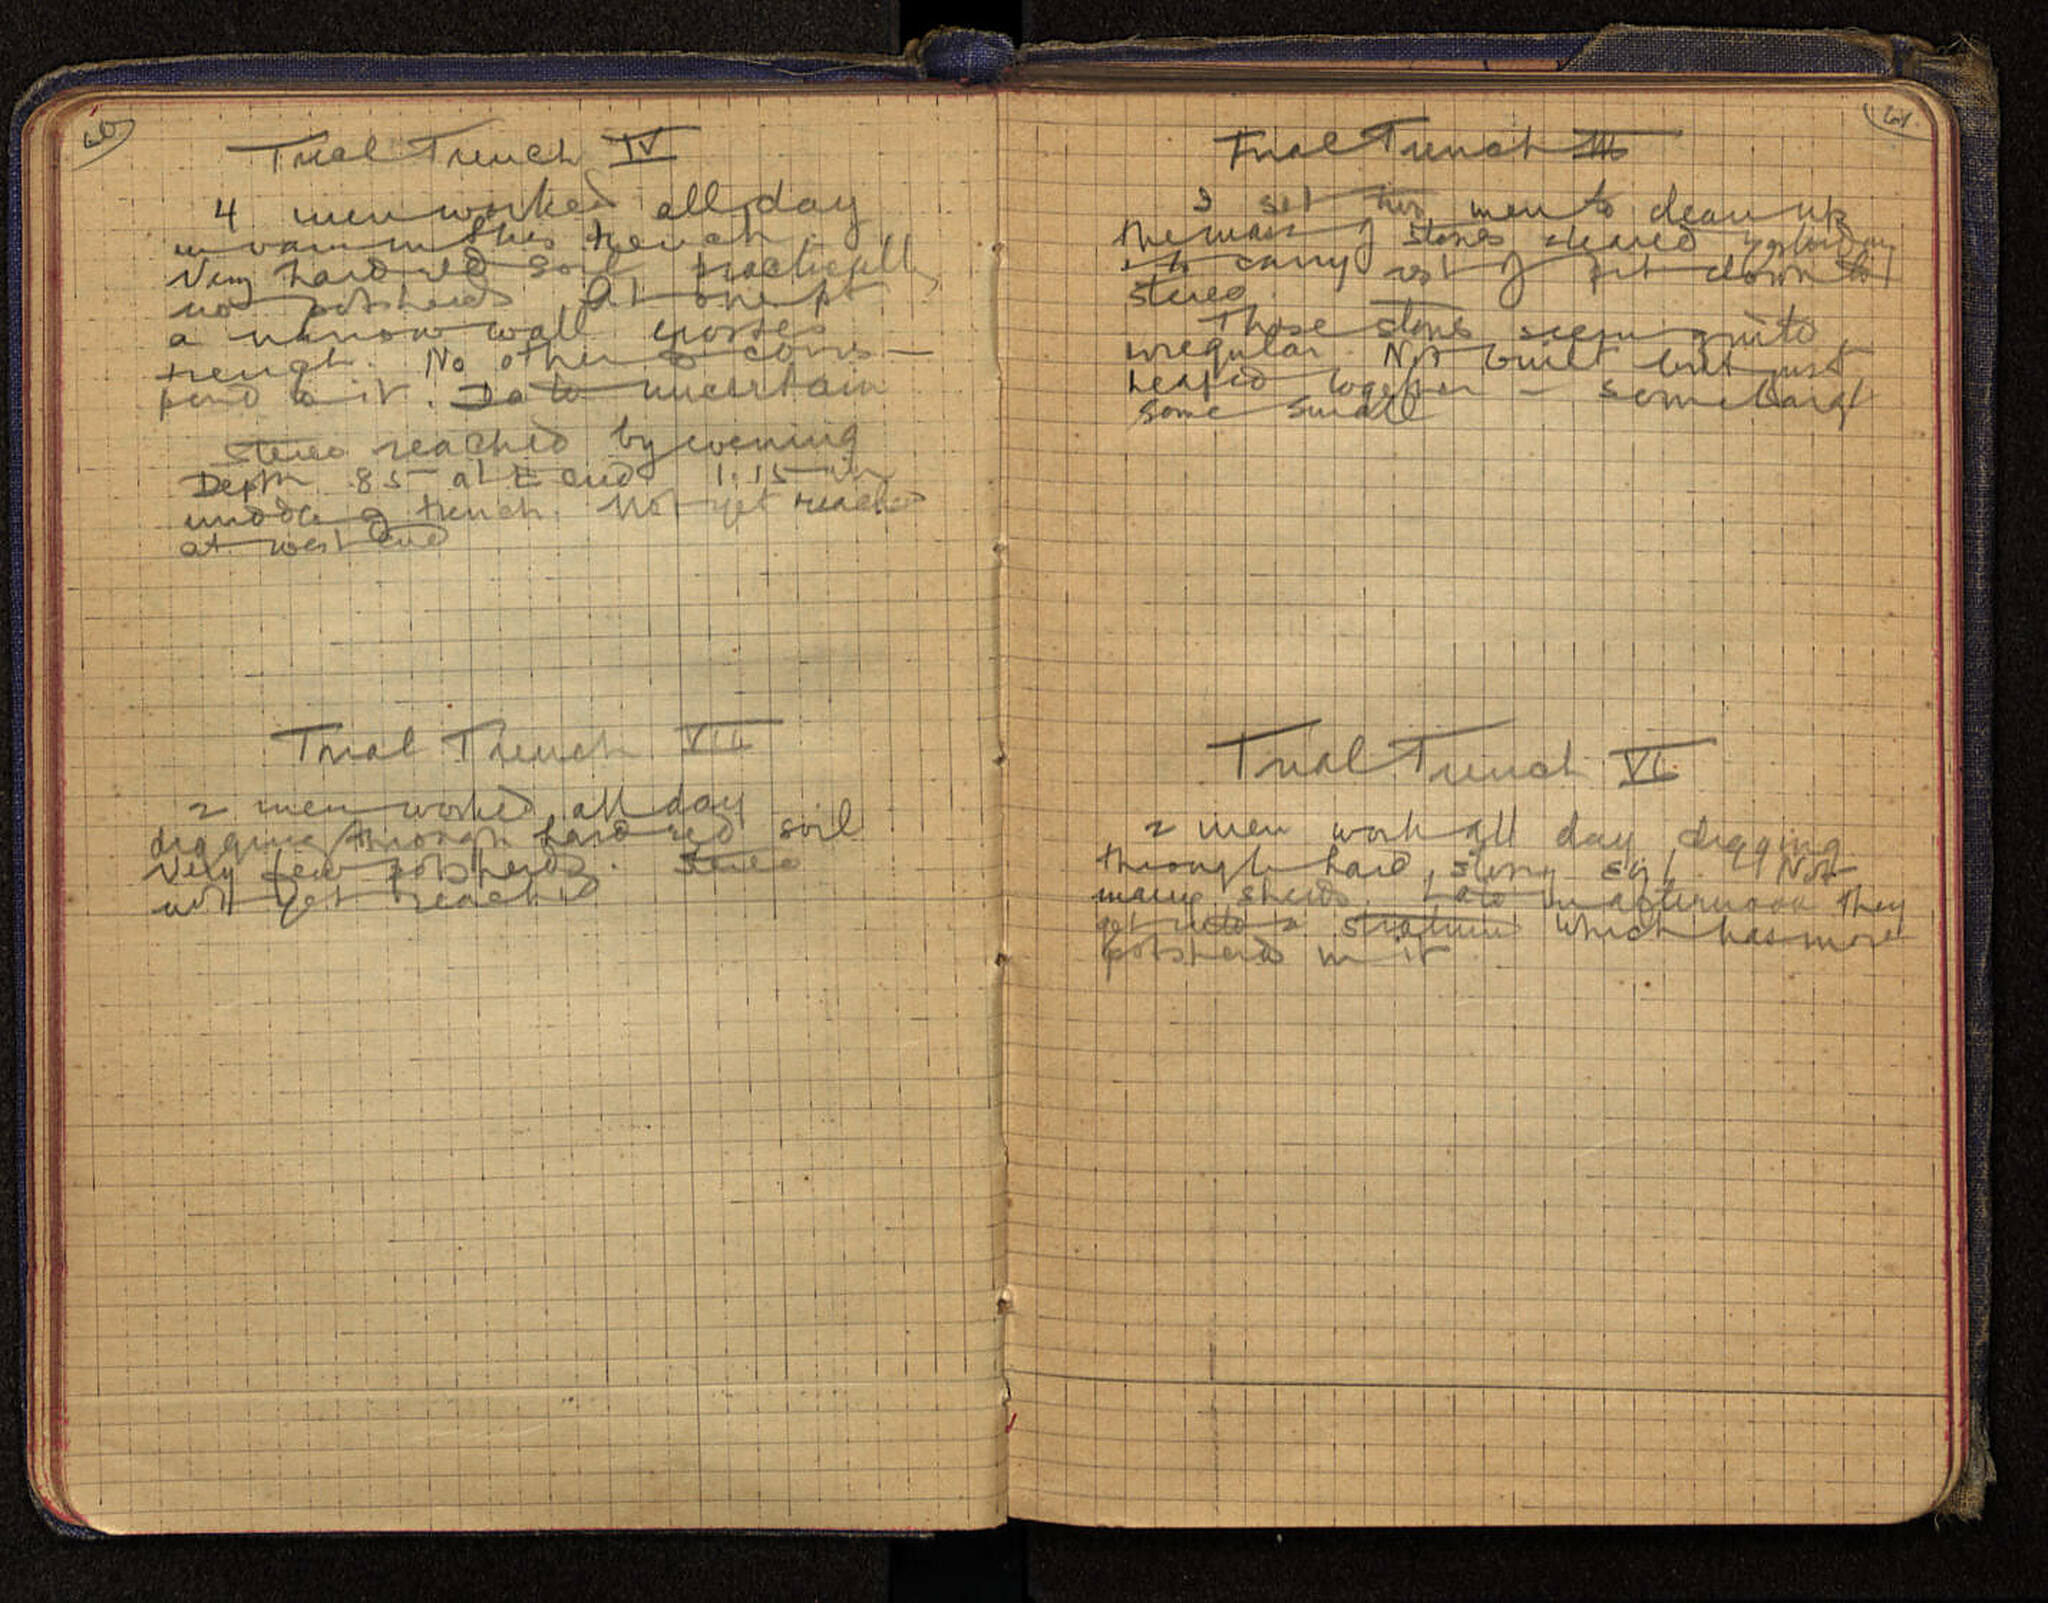 60
Trial Trench IV
4 men worked all day
in vain in this trench.
Very hard red soil practically
no potsherds At one pt
a narrow wall crosses
trench. No others corres-
pond to it. Date uncertain
Stereo reached by evening
Depth .85 at E end 1.15 in
middle of trench. Not yet reached
at west end
Trial Trench VII
2 men worked all day
digging through hard red soil
Very few potsherds. Stereo
not yet reached
61
Trial Trench III
I set two men to clean up
the mass of stones cleared yesterday
& to carry rest of pit down to
stereo.
These stones seem quite
irregular Not built but just
heaped together – some large
some small
Trial Trench VI
2 men work all day digging
through hard, stony soil. Not
many sherds. Late in afternoon they
get into a stratum which has more
potsherds in it